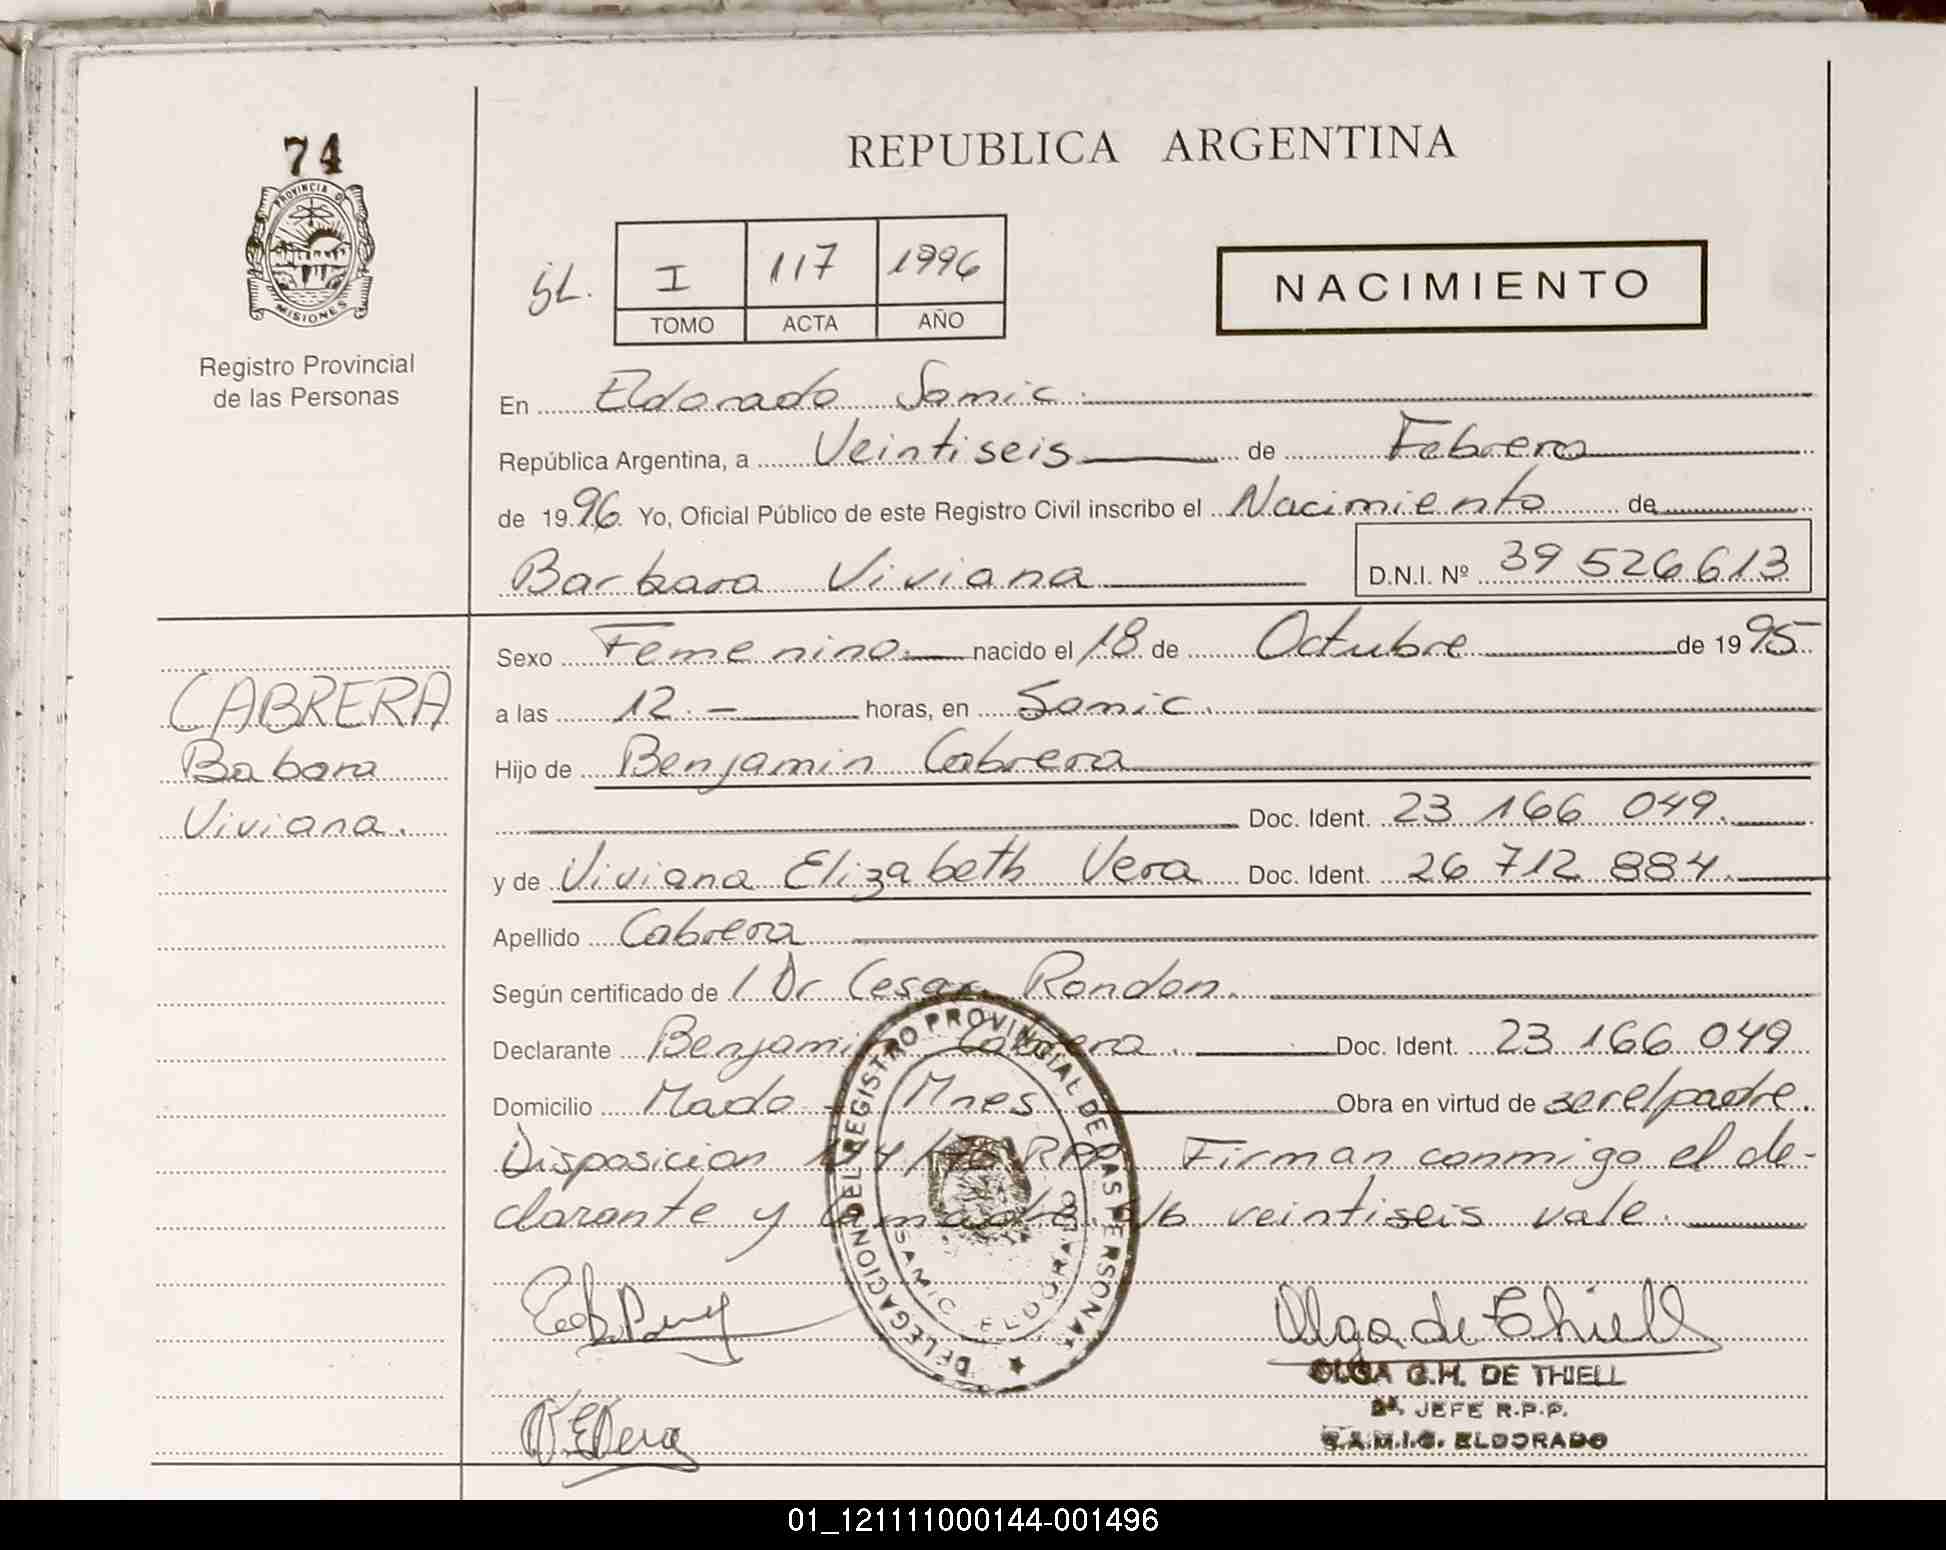 74
PROVINCIA D
MISIONES
Registro Provincial
de las Personas
REPUBLICA ARGENTINA
I 117 1996
TOMO ACTA AÑO
NACIMIENTO
En Eldorado Samic.
República Argentina, a Veintiseis de Febrero
de 1996. Yo, Oficial Público de este Registro Civil inscribo el Nacimiento de
Barbara Viviana D.N.I. Nº 39 526 613
Sexo Femenino. nacido el 18 de Octubre de 1995
a las 12.- horas, en Samic.
Hijo de Benjamin Cabrera
Doc. Ident. 23 166 049.
y de Viviana Elizabeth Vera Doc. Ident. 26 712 884.
Apellido Cabrera
Según certificado de Dr Cesar Rondon.
Declarante Benjamin Cabrera. Doc. Ident. 23 166 049
Domicilio Mado - Mnes Obra en virtud de ser el padre.
Disposicion RPP. Firman conmigo el de-
clarante y la madre. veintiseis vale.
CABRERA
Babara
Viviana.
DELEGACION DEL REGISTRO PROVINCIAL DE LAS PERSONAS
SAMIC ELDORADO
Olga de Thiell
OLGA G.H. DE THIELL
JEFE R.P.P.
S.A.M.I.C. ELDORADO
V E Vera
01_121111000144-001496